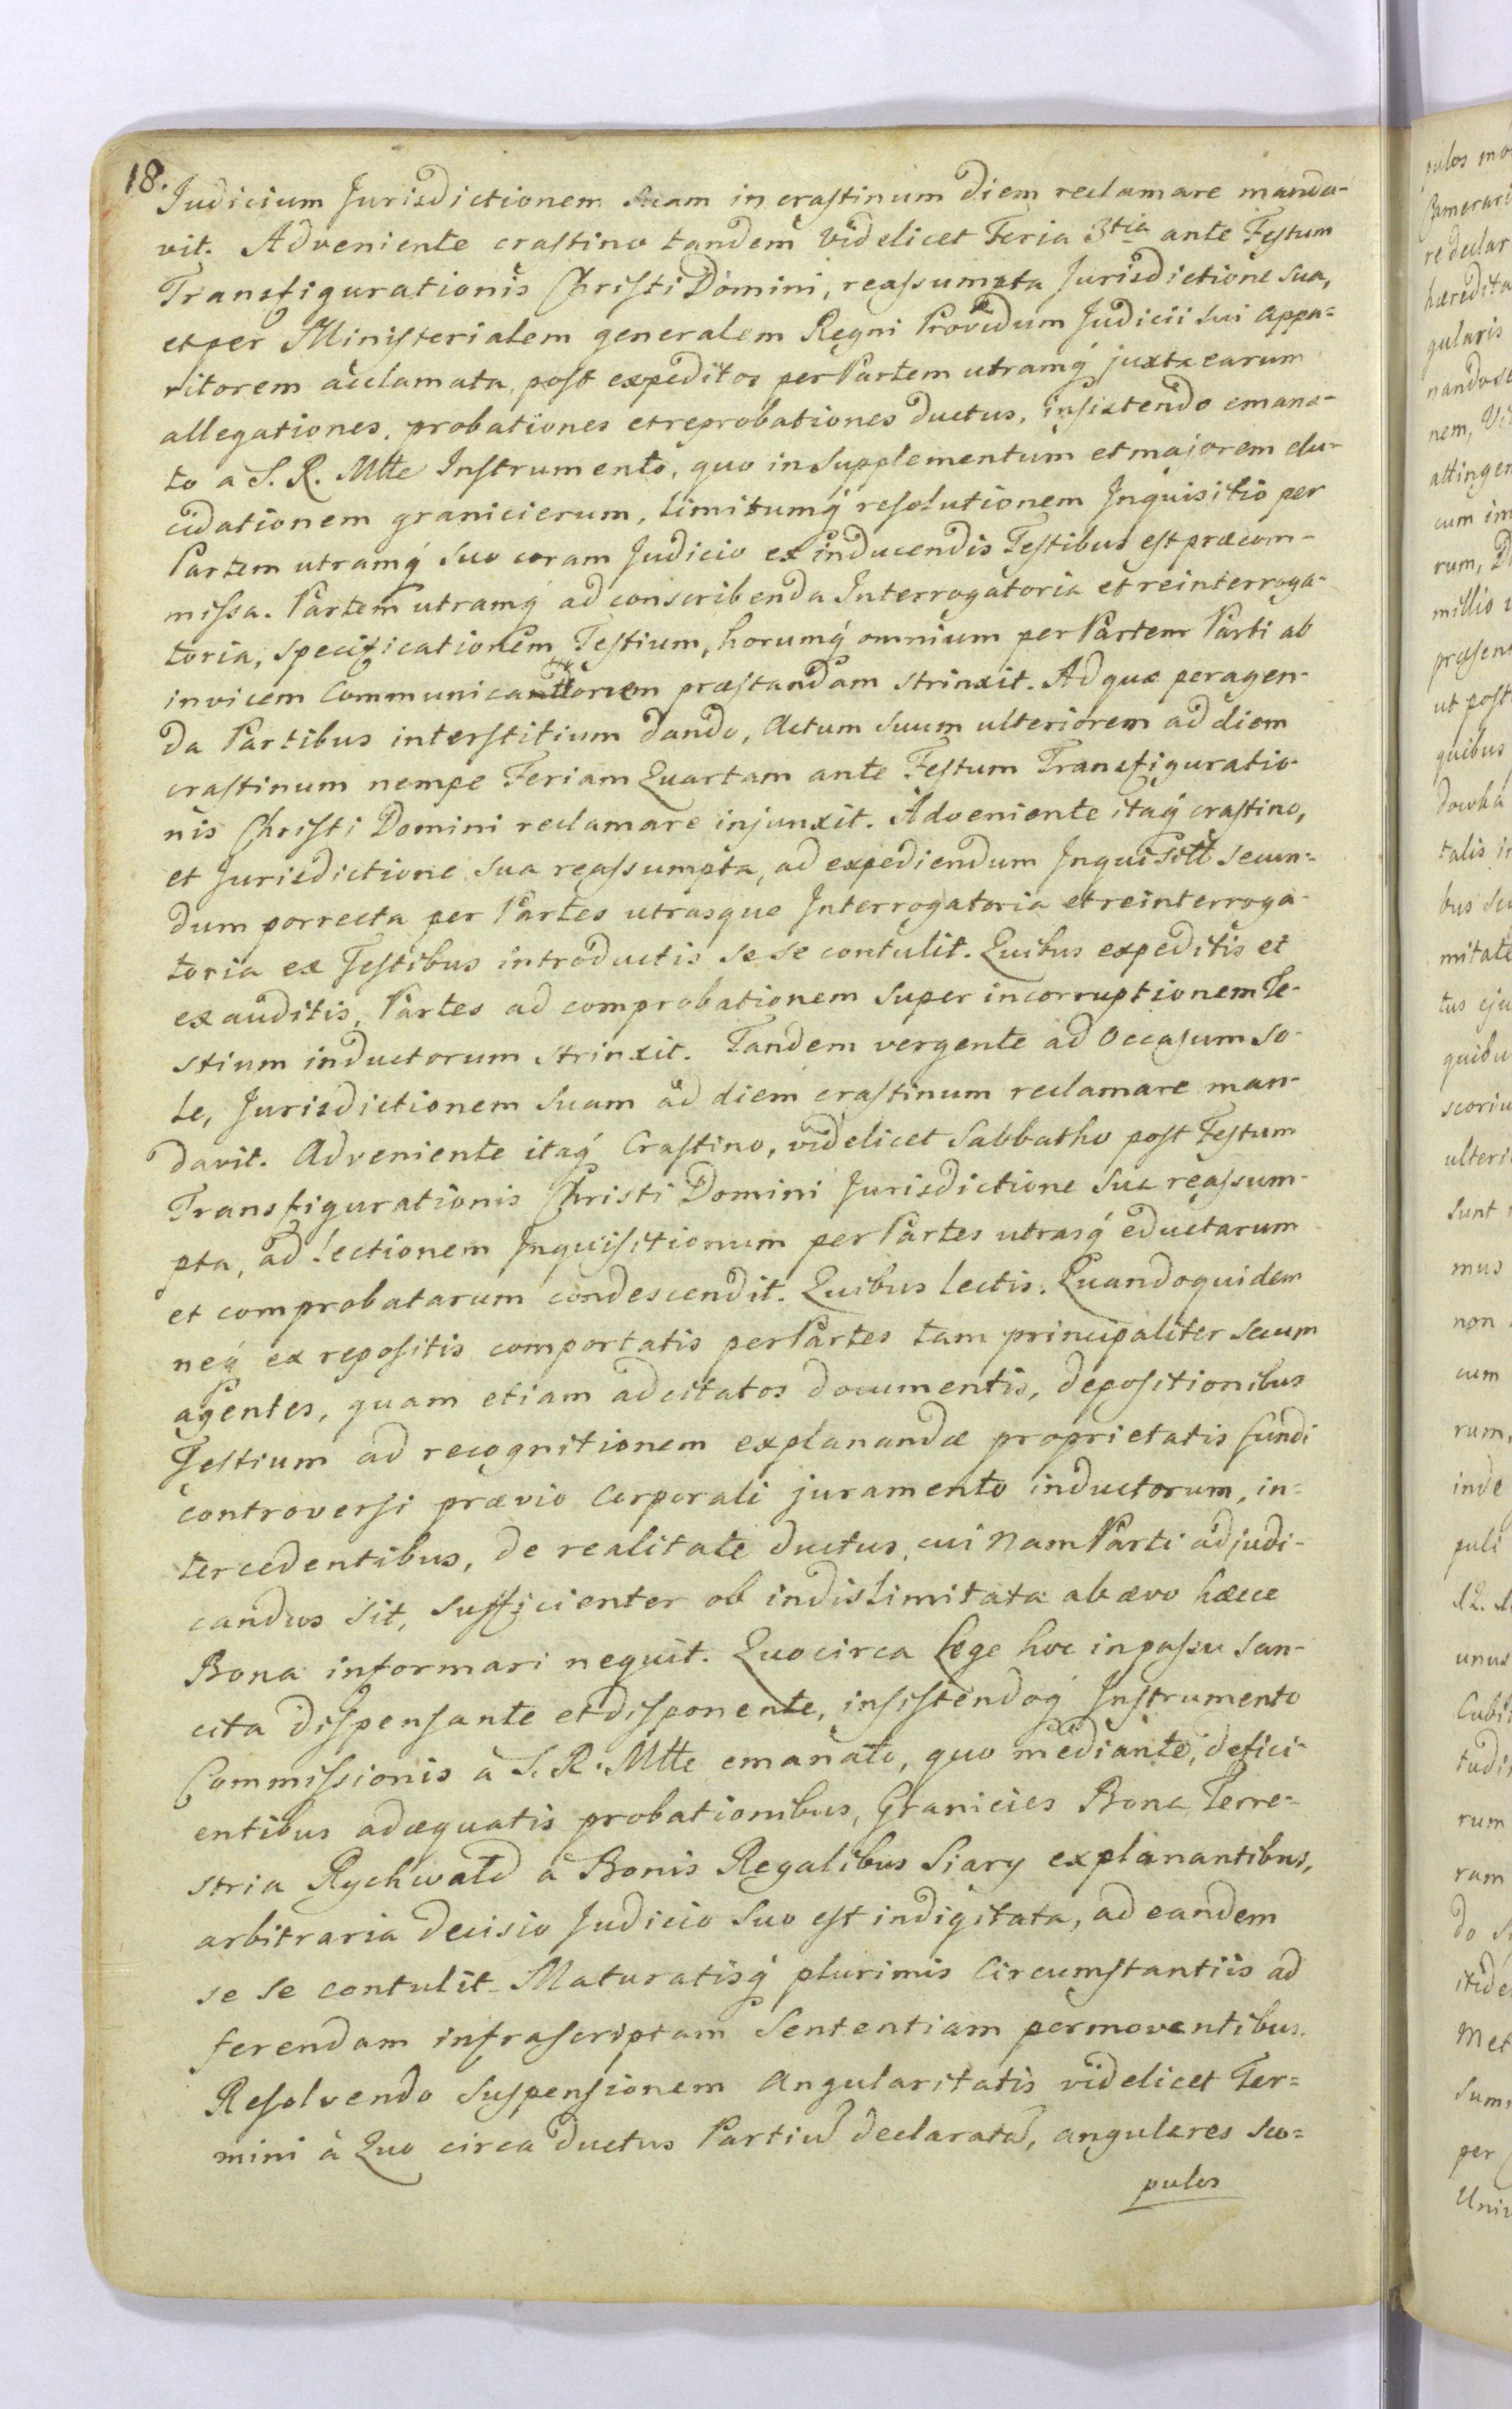 18.
Judicium Jurisdictionem Suam in crastinum diem reclamare manda-
vit. Adveniente crastino tandem videlicet Feria 3tia ante Festum
Transfigurationis Christi Domini, reassumpta Jurisdictione Sua,
et per Ministerialem generalem Regni Providum Judicii sui appa=
ritorem acclamata, post expeditos per Partem utramq́ juxta earum
allegationes, probationes et reprobationes ductus, insistendo emana-
to a S. R. Mtte Instrumento, quo in Supplementum et majorem elu-
cidationem granicierum, limitumq́ resolutionem Inquisitio per
Partem utramq́ suo coram Judicio ex inducendis Testibus est præcom-
missa. Partem utramq́ ad conscribenda Interrogatoria et reinterroga-
toria, specificationem Testium, horumq́ omnium per Partem Parti ab
invicem Communicationem præstandam strinxit. Ad quæ peragen-
da Partibus interstitium dando, Actum Suum ulteriorem ad diem
crastinum nempe Feriam Quartam ante Festum Transfiguratio-
nis Christi Domini reclamare injunxit. Adveniente itaq́ crastino,
et Jurisdictione Sua reassumpta, ad expediendum Inquisitt secun=
dum porrecta per Partes utrasque Interrogatoria et reinterroga-
toria ex Testibus introductis se se contulit. Quibus expeditis et
exauditis, Partes ad comprobationem super incorruptionem Te-
stium inductorum strinxit. Tandem vergente ad Occasum So-
le, Jurisdictionem Suam ad diem crastinum reclamare man-
davit. Adveniente itaq́ Crastino, videlicet Sabbatho post Festum
Transfigurationis Christi Domini Jurisdictione Sua reassum-
pta, ad lectionem Inquisitionum per Partes utrasq́ eductarum
et comprobatarum condescendit. Quibus lectis. Quandoquidem
neq́ ex repositis comportatis per Partes tam principaliter secum
agentes, quam etiam adcitatos documentis, depositionibus
Testium ad recognitionem explanandæ proprietatis fundi
controversi prævio Corporali juramento inductorum, in=
tercedentibus, de realitate ductus, cui nam Parti adjudi-
candus sit, Sufficienter ob indislimitata ab ævo hæcce
Bona informari nequit. Quocirca Lege hoc in passu san-
cita dispensante et disponente, insistendoq́ Instrumento
Commissionis a S. R. Mtte emanato, quo mediante, defici-
entibus adæquatis probationibus, Granicies Bona Terre-
stria Rychwald a Bonis Regalibus Siary explanantibus,
arbitraria decisio Judicio Suo est indigitata, ad eandem
se se contulit. Maturatisq́ plurimis Circumstantiis ad
ferendam infrascriptam Sententiam permoventibus.
Resolvendo Suspensionem Angularitatis videlicet Ter=
mini à Quo circa ductus Partiu declarata, angulares Sco=
pulos
pulos
re declar
gularis
nem,
cum im
rum,
ut post
quibus
talis
tus eju
quibu
ulteri
sunt
mus
non
cum
rum,
inde
puli
unus
rum
ram
per